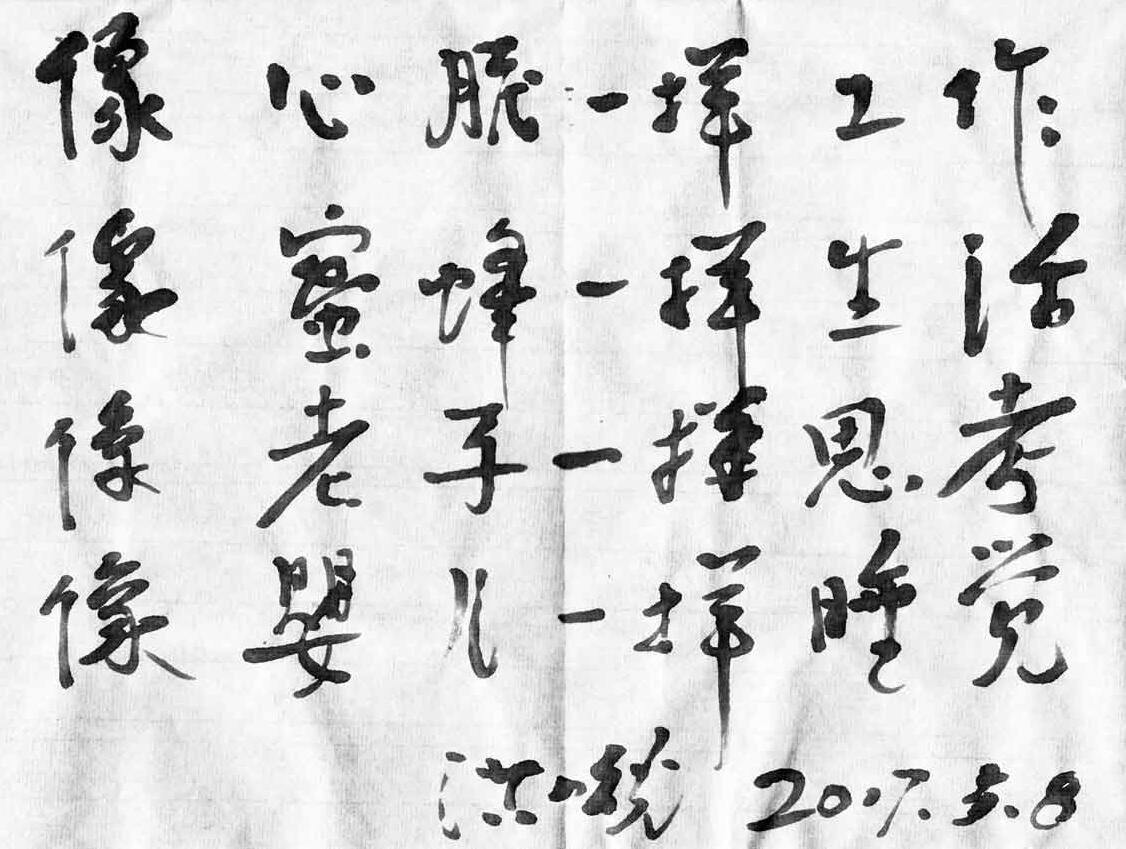 像心脏一样工作
像蜜蜂一样生活
像老子一样思考
像婴儿一样睡觉
洪 2017.5.8